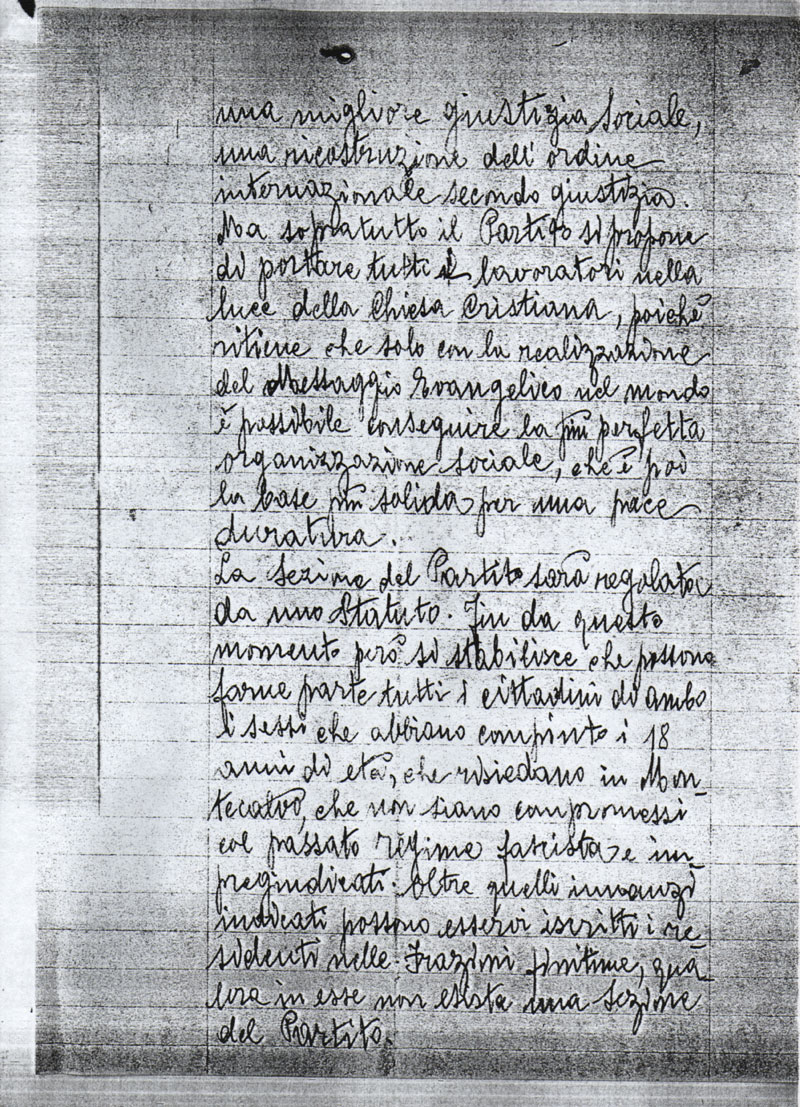 una migliore giustizia sociale,
una ricostruzione dell'ordine
internazionale secondo giustizia.
Ma sopratutto il Partito si propone
di portare tutti i lavoratori nella
luce della Chiesa Cristiana, poichè
ritiene che solo con la realizzazione
del Messaggio Evangelico nel mondo
è possibile conseguire la più perfetta
organizzazione sociale, che è poi
la base più solida per una pace
duratura.
La Sezione del Partito sarà regolata
da uno Statuto. Fin da questo
momento però si stabilisce che possono
farne parte tutti i cittadini di ambo
i sessi che abbiano compiuto i 18
anni di età, che risiedano in Mon-
tecalvo, che non siano compromessi
col passato regime fascista e im-
pregiudicati. Oltre quelli innanzi
indicati possono esservi iscritti i re-
sidenti nelle Frazioni finitime, qua-
lora in esse non esista una Sezione
del Partito.